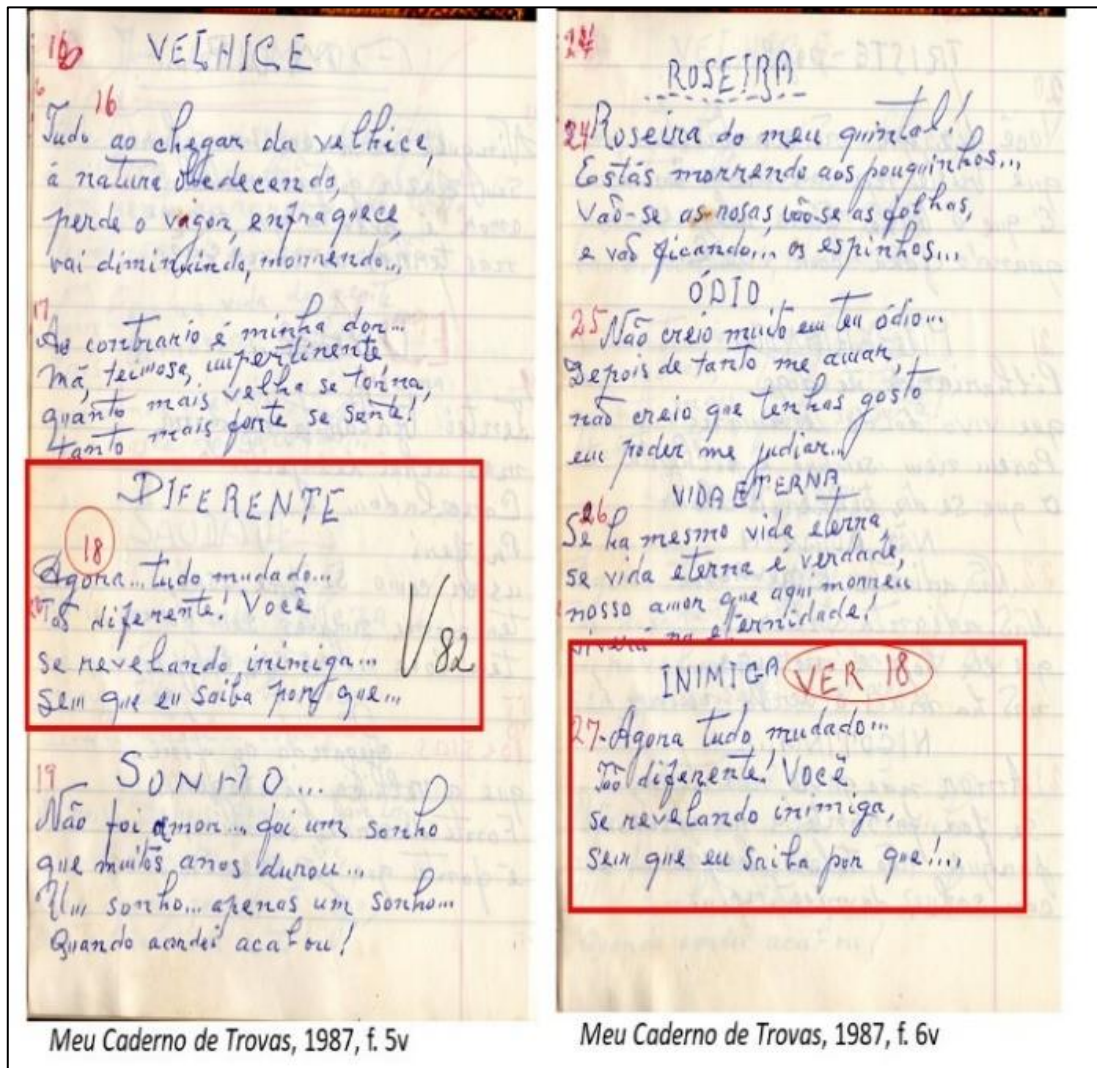 16
VELHICE
16
Tudo ao chegar da velhice,
á nature obedecendo,
perde o vigor, enfraquece,
vai diminuindo, morrendo...
17
Ao contrario é minha dor...
má, teimosa, impertinente
quanto mais velha se torna,
tanto mais forte se sente!
DIFERENTE
18
Agora... tudo mudado...
Tão diferente! Você
se revelando inimiga...
Sem que eu saiba por que...
V82
19
SONHO...
Não foi amor... foi um sonho
que muitos anos durou...
Um sonho... apenas um sonho...
Quando acordei acabou!
Meu Caderno de Trovas, 1987, f. 5v
ROSEIRA
24 Roseira do meu quintal!
Estás morrendo aos pouquinhos...
Vão-se as rosas vão-se as folhas,
e vão ficando... os espinhos...
ÓDIO
25 Não creio muito em teu ódio...
Depois de tanto me amar,
não creio que tenhas gosto
em poder me judiar...
VIDA ETERNA
26
Se ha mesmo vida eterna,
se vida eterna é verdade,
nosso amor que aqui morreu
viverá na eternidade!
INIMIGA VER 18
27-Agora tudo mudado...
Tão diferente! Você
se revelando inimiga,
sem que eu saiba por que!...
Meu Caderno de Trovas, 1987, f. 6v